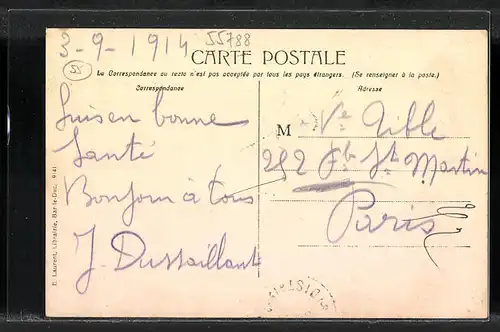 3-9-1914
55788
52
CARTE POSTALE
La Correspondance au recto n'est pas acceptée par tous les pays étrangers. (Se renseigner à la poste.)
Correspondance
Adresse
Suis en bonne
Santé
Bonjour à tous
J. Dussaillant
M Vve
252 Fb St Martin
Paris
E. Laurent, Librairie, Bar-le-Duc.